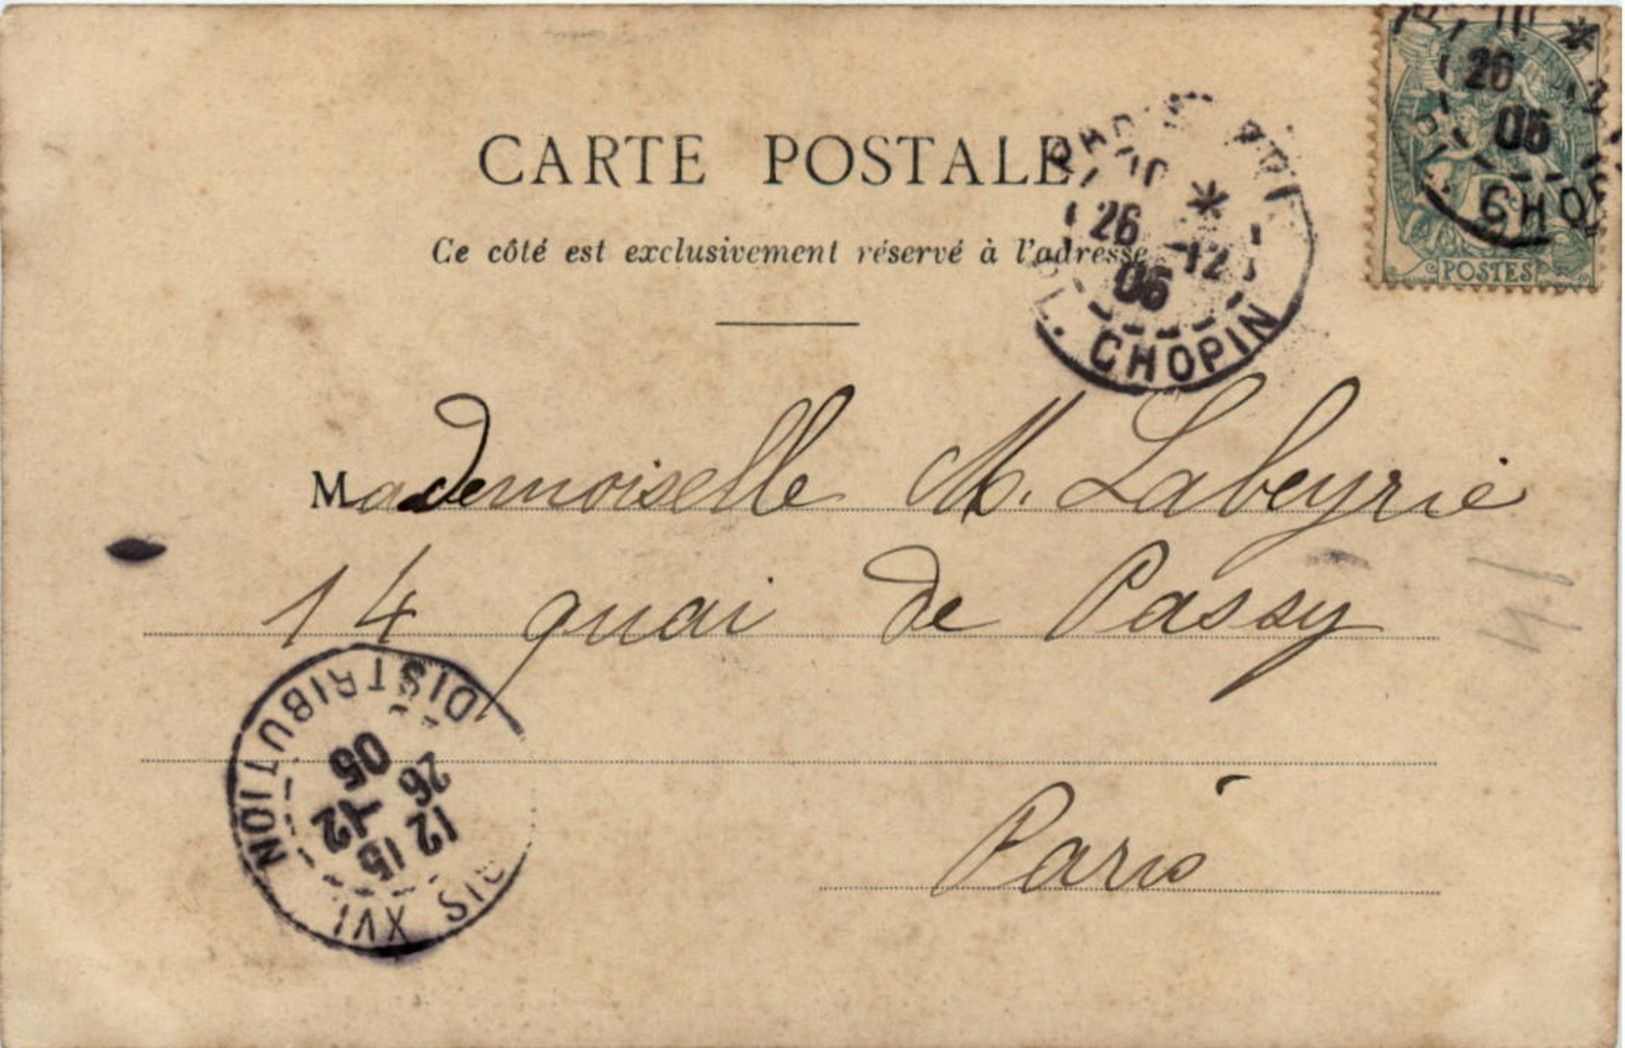 CARTE POSTALE
Ce côté est exclusivement réservé à l'adresse
PARIS XVI
*
26 -12
05
PL. CHOPIN
*
26
05
CHO
POSTES
Mademoiselle M. Labeyrie
14 quai de Passy
Paris
DISTRIBUTION
12 15
26 -12
05
RIS XVI